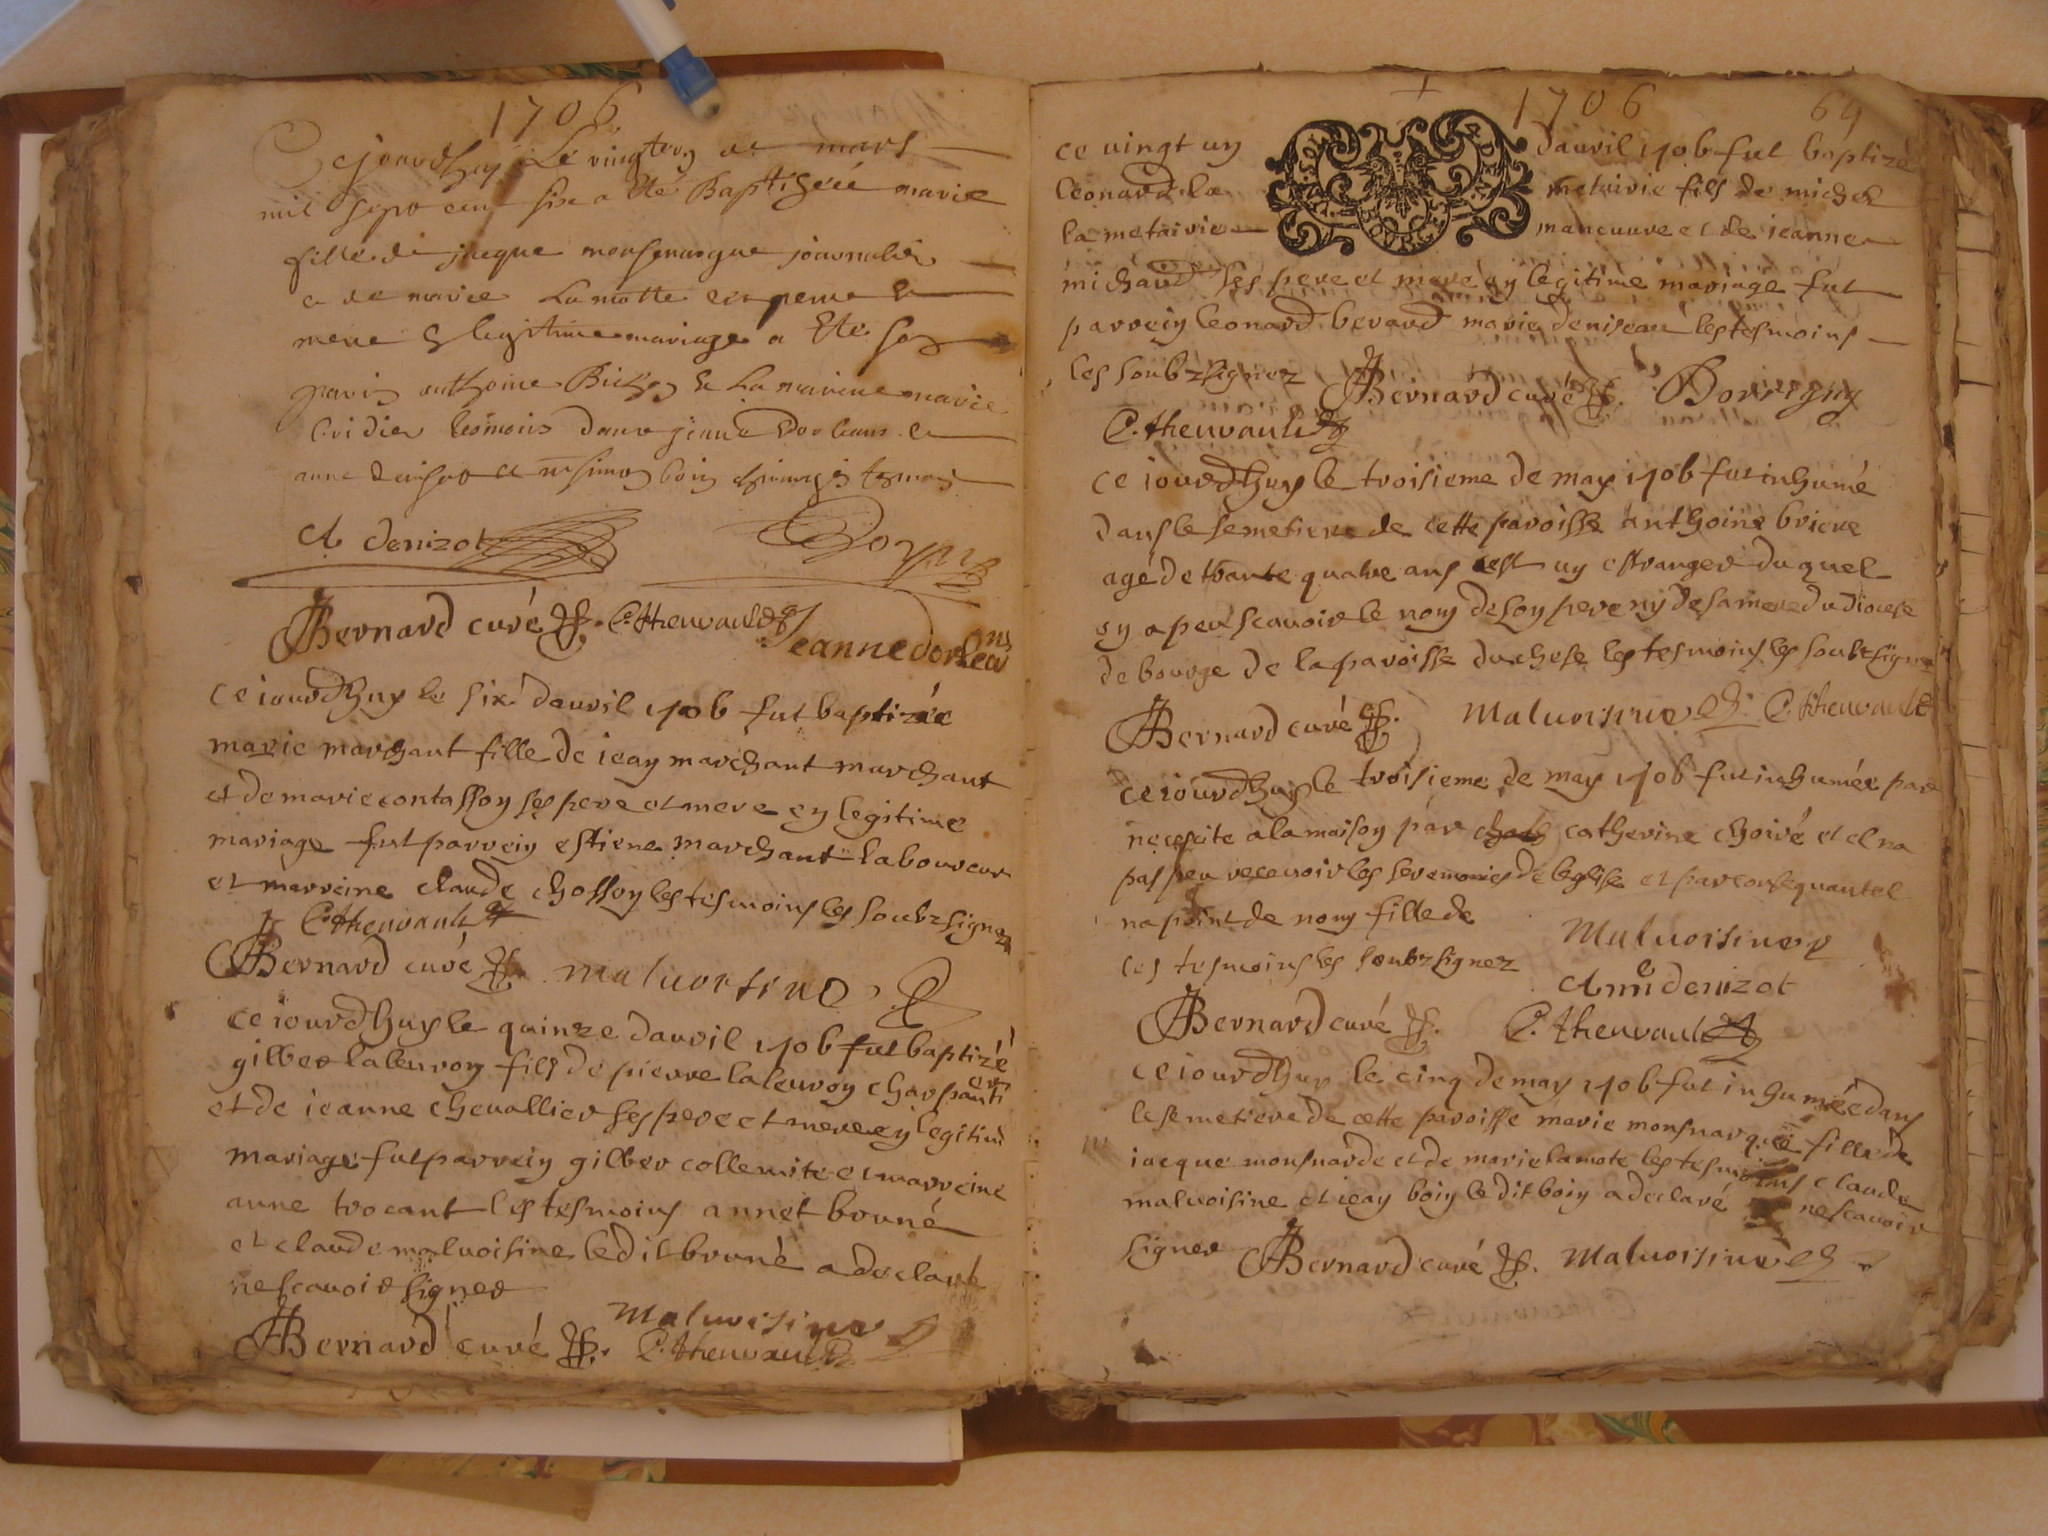 1706
Cejourdhuy Le vingt de mars
mil sept cent six a Eté Baptiseé marie
fille de jacque monsnargue journalier
et de marie La motte ses pere &
mere legitime mariage a Eté son
parin anthoine & La marene marie
bridier temoins jeanne dorleans et
anne denisot et simon boin
A denizot
Bernard curé C. Theuvault Jeanne dorleans
ce iourdhuy le six davril 1706 fut baptizée
marie marchant fille de iean marchant marchant
et de marie contasson ses pere et mere en legitime
mariage fut parrein estiene marchant laboureur
et marreine claude chosson les tesmoins les soubzsignez
C. theuvault
Bernard curé malvoisine
ce iourdhuy le quinze davril 1706 fut baptizé
gilber laleuron fils de pierre laleuron charpanti
er
et de ieanne chevallier ses pere et mere en legitime
mariage fut parrein gilber collemite et marreine
anne trocant les tesmoins annet brunè
et claude malvoisine ledit brunè a declaré
ne scavoir signer
Malvoisine
Bernard curé C. theuvault
1706 64
ce vingt un davril 1706 fut baptizé
leonard la metairie fils de michel
la metairie maneuvre et de ieanne
michaud ses pere et mere en legitime mariage fut
parrein leonard berard marie deniseau les tesmoins
les soubzsignez Bernard curé
C. theuvault
ce iourdhuy le troisieme de may 1706 fut inhumé
dans le semetiere de cette paroisse anthoine briere
agé de trante quatre ans cest un estranger du quel
on a peu scavoir le nom de son pere ny de sa mere du diocese
de bourge de la paroisse du chese les tesmoins les soubzsigne
Bernard curé Malvoisine C. theuvault
ce iourdhuy le troisieme de may 1706 fut inhumée par
necessite a la maison par catherine choiré et el na
pas peu recevoir les seremonies de leglise et par consequant el
na point de nom fille de
ces tesmoins les soubzsignez Malvoisine
Anne denizot
Bernard curé C. theuvault
ce iourdhuy le cinq de may 1706 fut inhumée dans
le semetiere de cette paroisse marie monsnarque fille de
iacque monsnarde et de marie lamote les tesmoins claude
malvoisine et iean boin ledit boin a declaré ne scavoir
signer Bernard curé Malvoisine